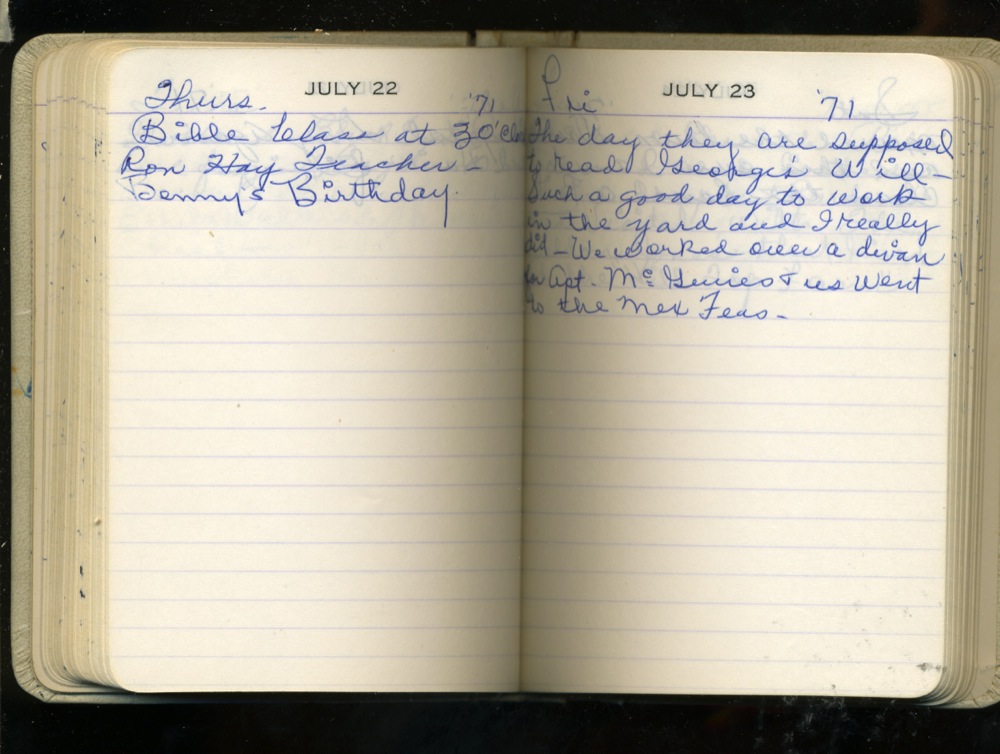 JULY 22
Thurs. '71
Bible Class at 3 O'Clo
Ron Hay Teacher -
Benny's Birthday.
JULY 23
Fri '71
The day they are supposed
to read George's Will -
Such a good day to work
in the yard and I really
did - We worked over a divan
for Apt. - & us went
to the Mex Feas -